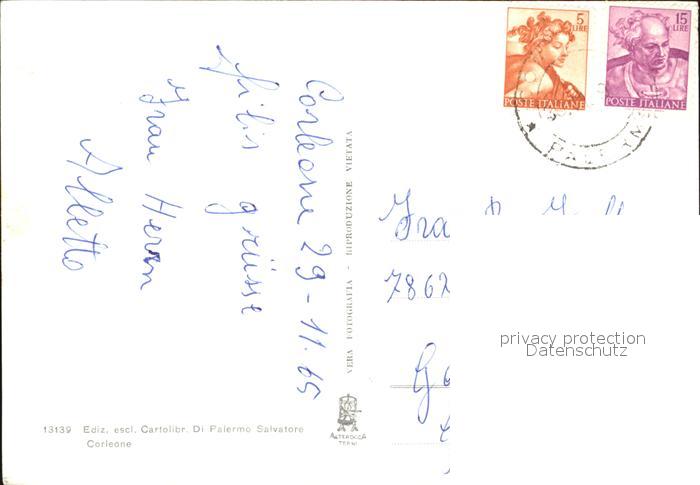 Corleone 29-11.65
grüsse
Frau Heron
Alletto
VERA FOTOGRAFIA - RIPRODUZIONE VIETATA
13139 Ediz. escl. Cartolibr. Di Palermo Salvatore
Corleone
ALTEROCCA
TERNI
5
LIRE
POSTE ITALIANE
15
LIRE
POSTE ITALIANE
Fra
7862
privacy protection
Datenschutz